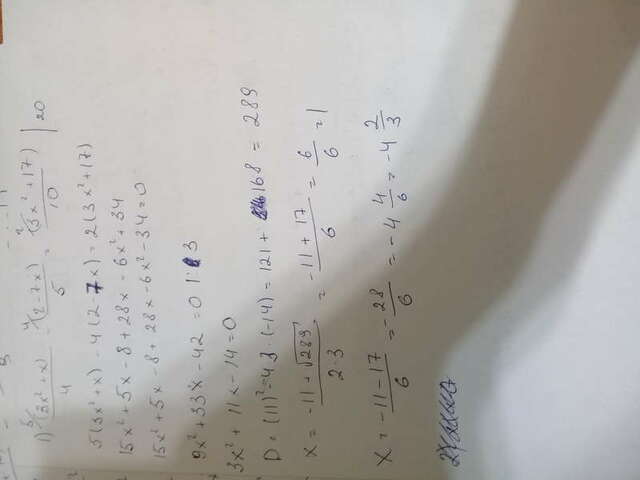 1) ⁵/(3x² + x)/4 - ⁴/(2-7x)/5 = ²/(3x² + 17)/10 | 20
5(3x² + x) - 4(2-7x) = 2(3x² + 17)
15x² + 5x - 8 + 28x - 6x² + 34
15x² + 5x - 8 + 28x - 6x² - 34 = 0
9x² + 33x - 42 = 0 | : 3
3x² + 11x - 14 = 0
D = (11)² - 4 3 · (-14) = 121 + 168 = 289
x = (-11 + √289)/(2·3) = (-11 + 17)/6 = 6/6 = 1
x = (-11-17)/6 = -28/6 = -4 4/6 = -4 2/3